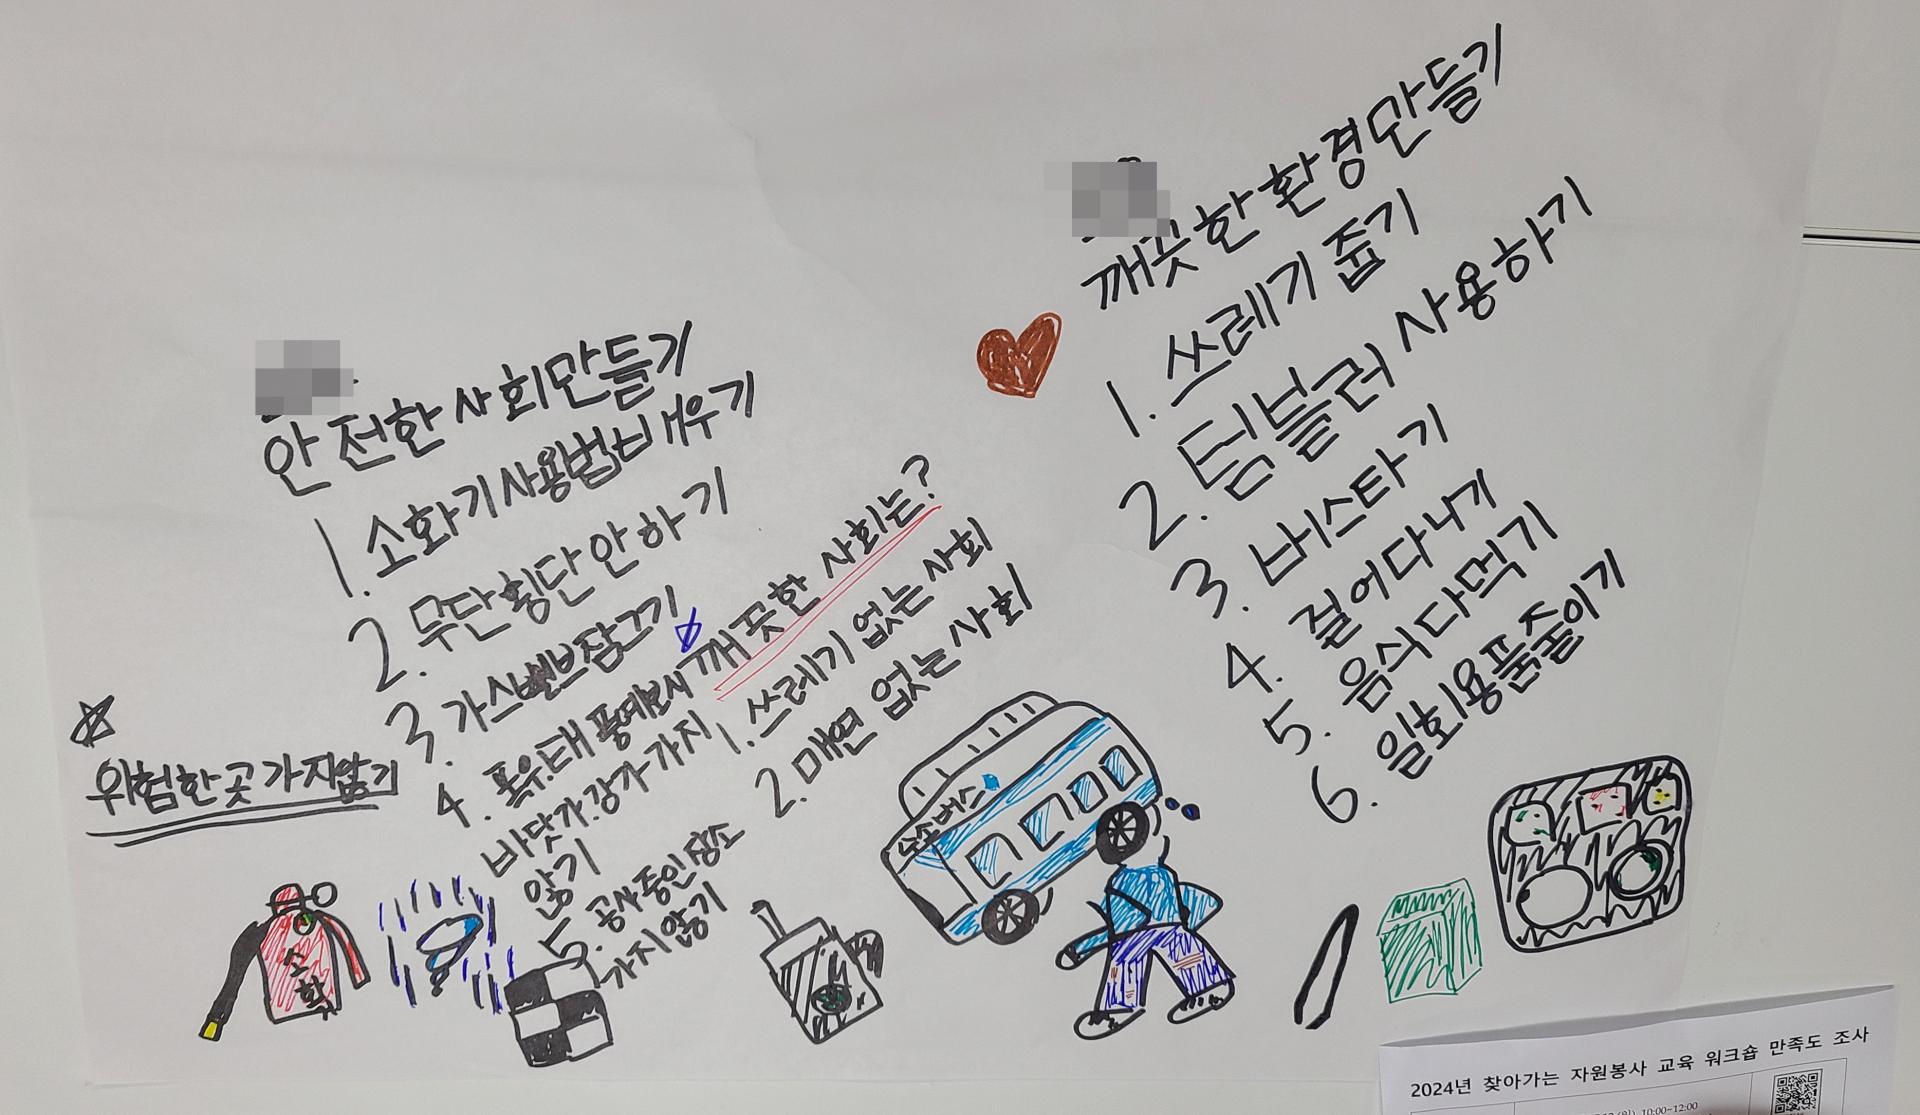 안전한 사회만들기
1. 소화기 사용법 배우기
2. 무단횡단 안하기
3. 가스밸브잠그기
4. 폭우.태풍예보시
바닷가.강가 가지
않기
5. 공사중인 장소
가지않기
위험한 곳 가지않기
소화
깨끗한 사회는?
1. 쓰레기 없는 사회
2. 매연 없는 사회
수소버스
깨끗한 환경만들기
1. 쓰레기 줍기
2. 텀블러 사용하기
3. 버스타기
4. 걸어다니기
5. 음식 다먹기
6. 일회용품줄이기
2024년 찾아가는 자원봉사 교육 워크숍 만족도 조사
10:00~12:00